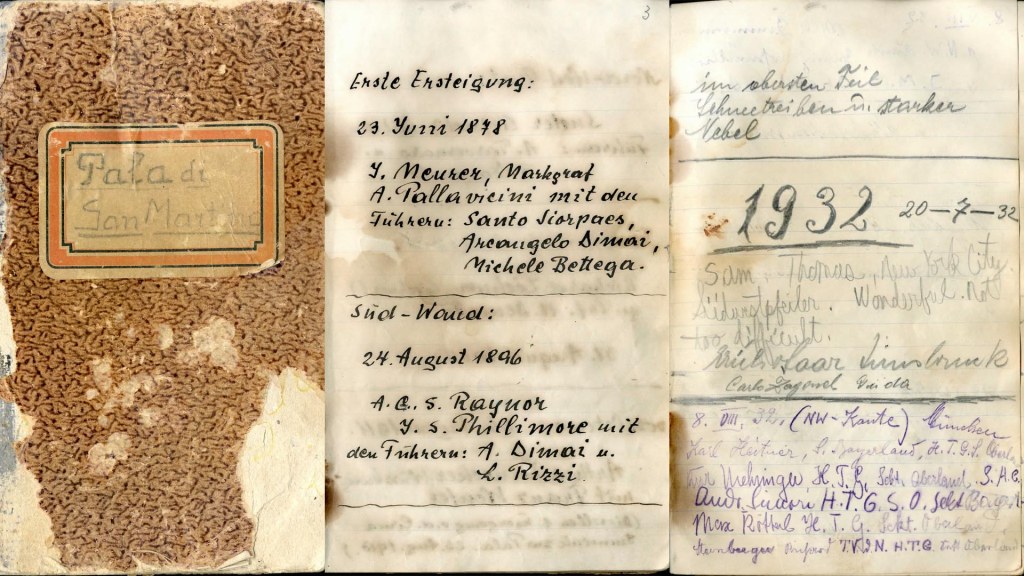 Pala di
San Martino
3
Erste Ersteigung:
23. Juni 1878
J. Meurer, Markgraf
A. Pallavicini mit den
Führern: Santo Siorpaes,
Arcangelo Dimai,
Michele Bettega.
Süd-Wand:
24. August 1896
A. G. S. Raynor
J. S. Phillimore mit
den Führern: A. Dimai u.
L. Rizzi
im obersten Teil
Schneetreiben u. starker
Nebel
1932 20-7-32
Sam Thomas, New York City.
Südwestpfeiler. Wonderful. Not
too difficult.
Saar Innsbruck
Carlo Zagonel Guida
8. VIII. 32. (NW-Kante) München
Karl H. T. G. S.
H. T. G. Sekt. Oberland S.
H. T. G. S. O. Sekt
Max H. T. G. Sekt. Oberland
H. T. G. Oberland